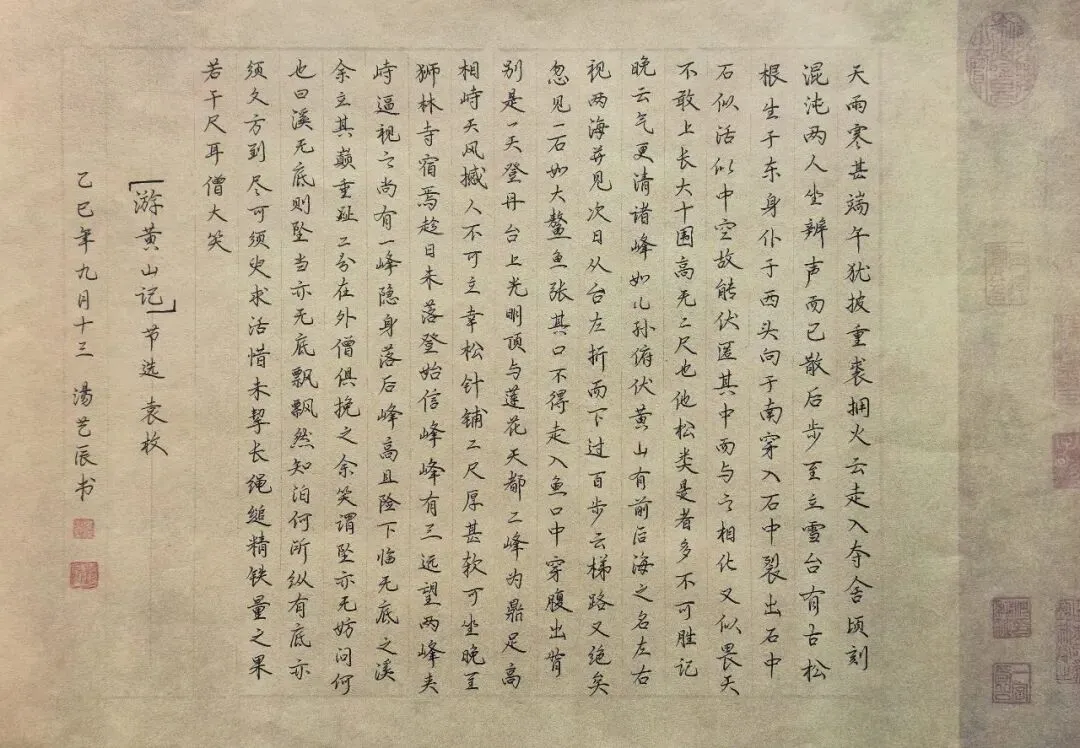 天雨寒甚端午犹披重裘拥火云走入夺舍顷刻
混沌两人坐辨声而已散后步至立雪台有古松
根生于东身仆于西头向于南穿入石中裂出石中
石似活似中空故能伏匿其中而与之相化又似畏天
不敢上长大十围高无二尺也他松类是者多不可胜记
晚云气更清诸峰如儿孙俯伏黄山有前后海之名左右
视两海并见次日从台左折而下过百步云梯路又绝矣
忽见一石如大鳌鱼张其口不得走入鱼口中穿腹出背
别是一天登丹台上光明顶与莲花天都二峰为鼎足高
相峙天风撼人不可立幸松针铺二尺厚甚软可坐晚至
狮林寺宿焉趁日未落登始信峰峰有三远望两峰夹
峙逼视之尚有一峰隐身落后峰高且险下临无底之溪
余立其巅垂趾二分在外僧惧挽之余笑谓坠亦无妨问何
也曰溪无底则坠当亦无底飘飘然知泊何所纵有底亦
须久方到尽可须臾求活惜未挈长绳缒精铁量之果
若干尺耳僧大笑
「游黄山记」节选 袁枚
乙巳年九月十三 汤艺辰书